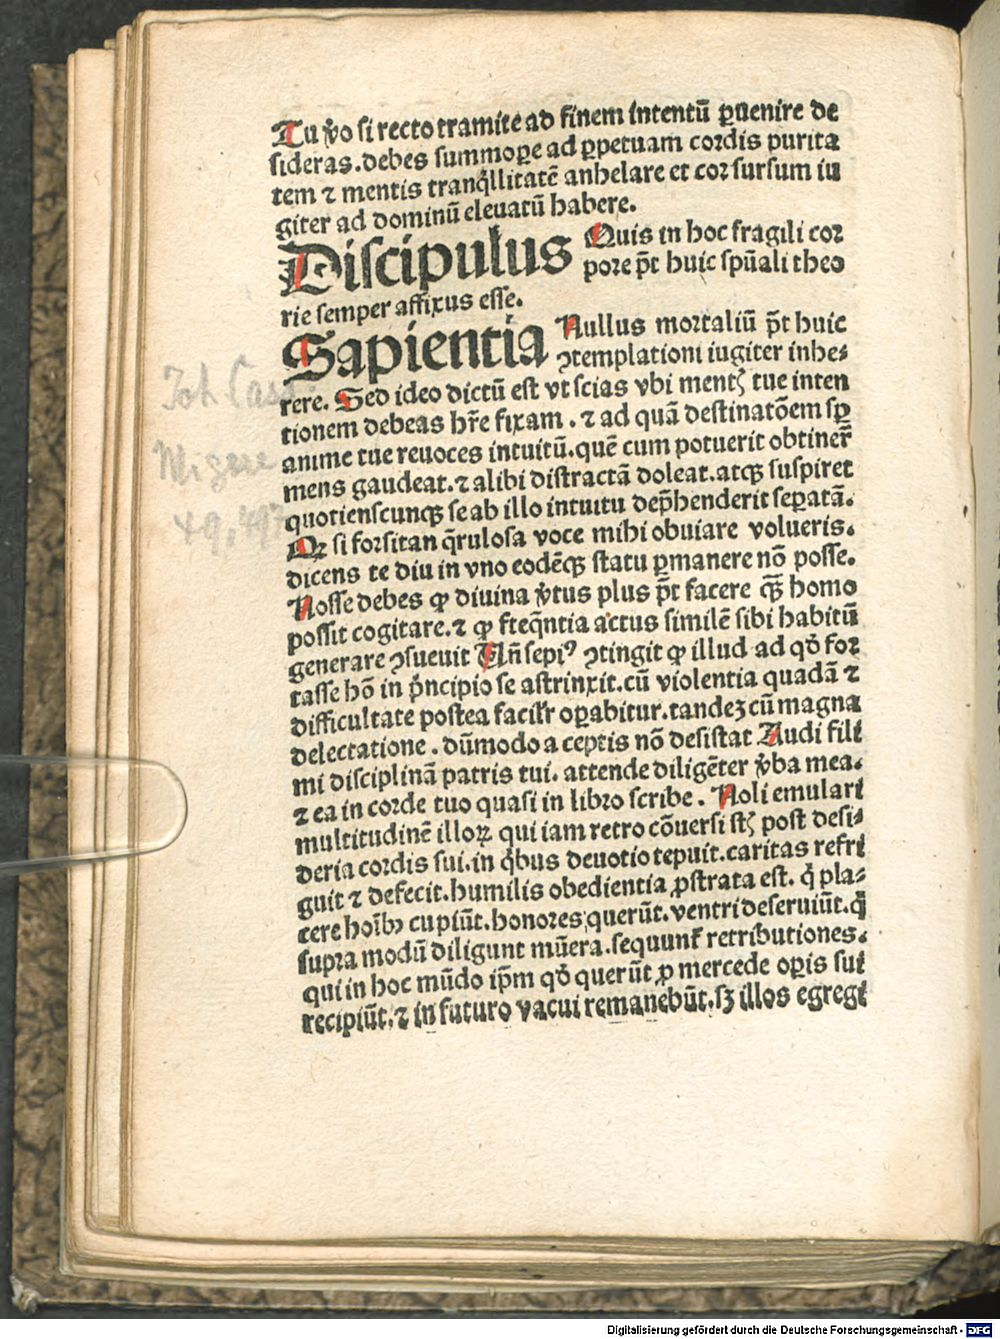 Tu v̾o si recto tramite ad finem intentū ꝑuenire de
sideras.debes summoꝑe ad ꝑpetuam cordis purita
tem ⁊ mentis tranq̇llitatē anhelare et cor sursum iu
giter ad dominū eleuatū habere.
Discipulus Quis in hoc fragili cor
pore p̄t huic spūali theo
rie semper affixus esse.
Sapientia Nullus mortaliū p̄t huic
ꝯtemplationi iugiter inhe⸗
rere. Sed ideo dictū est vt scias vbi mentꝭ tue inten
tionem debeas hr̄e fixam. ⁊ ad quā destinatōem sꝑ
anime tue reuoces intuitū.quē cum potuerit obtiner̄
mens gaudeat.⁊ alibi distractā doleat.atqꝫ suspiret
quotienscunqꝫ se ab illo intuitu dep̄henderit seꝑatā.
Qꝛ si forsitan q̄rulosa voce mihi obuiare volueris.
dicens te diu in vno eodēqꝫ statu ꝑmanere nō posse.
Nosse debes ꝙ diuina v̾tus plus p̄t facere qꝫ̄ homo
possit cogitare.⁊ ꝙ freq̄ntia actus similē sibi habitū
generare ꝯsueuit Uñ sepiꝰ ꝯtingit ꝙ illud ad qd̾ for
tasse hō in pͥncipio se astrinxit.cū violentia quadā ⁊
difficultate postea facilꝰr oꝑabitur.tandeꝫ cū magna
delectatione. dūmodo a ceptis nō desistat Audi fili
mi disciplinā patris tui. attende diligēter v̾ba mea.
⁊ ea in corde tuo quasi in libro scribe. Noli emulari
multitudinē illoꝝ qui iam retro cōuersi stꝭ post desi⸗
deria cordis sui.in qͥbus deuotio tepuit.caritas refri
guit ⁊ defecit.humilis obedientia ꝓstrata est. qͥ pla⸗
cere hoībꝰ cupiūt.honores querūt.ventri deseruiūt.qͥ
supra modū diligunt mūera.sequunt᷑ retributiones.
qui in hoc mūdo ip̄m qd̾ querūt ꝓ mercede oꝑis sui
recipiūt.⁊ in futuro vacui remanebūt.sꝫ illos egregi
Joh Cass
49,
Digitalisierung gefördert durch die Deutsche Forschungsgemeinschaft - DFG